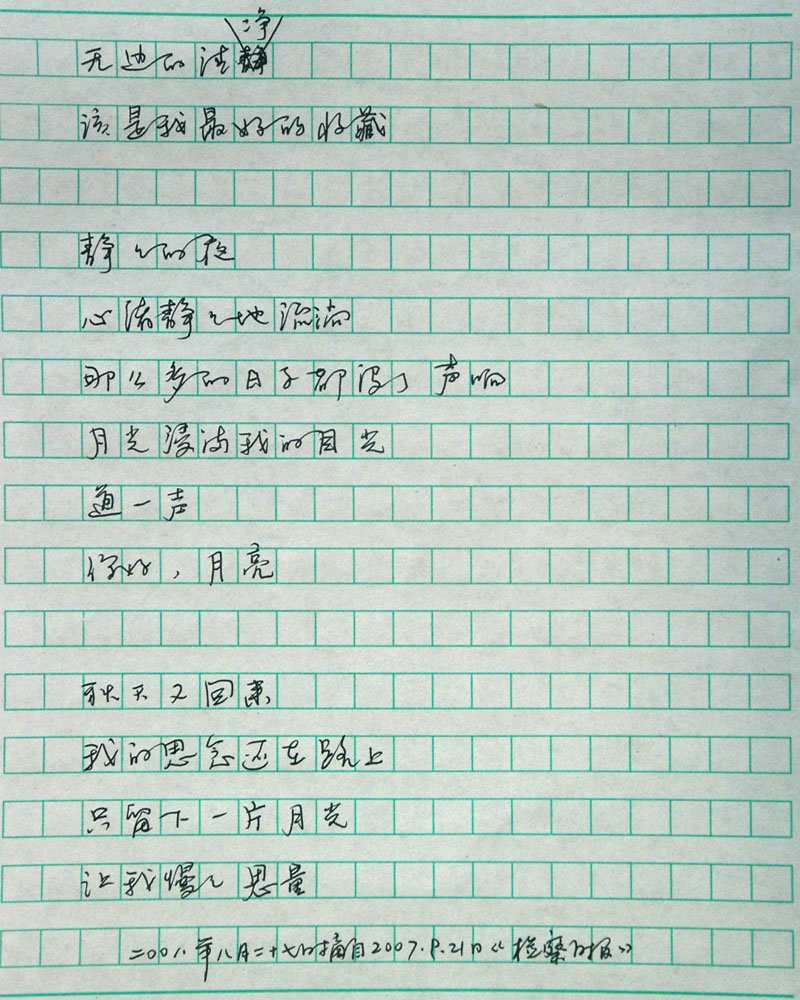 净
无边的洁
该是我最好的收藏
静々的夜
心潮静々地流淌
那么多的日子都没了声响
月光浸满我的目光
道一声
你好，月亮
秋天又回来
我的思念还在路上
只留下一片月光
让我慢々思量
二00八年八月二十七日摘自2007.9.21日《检察日报》